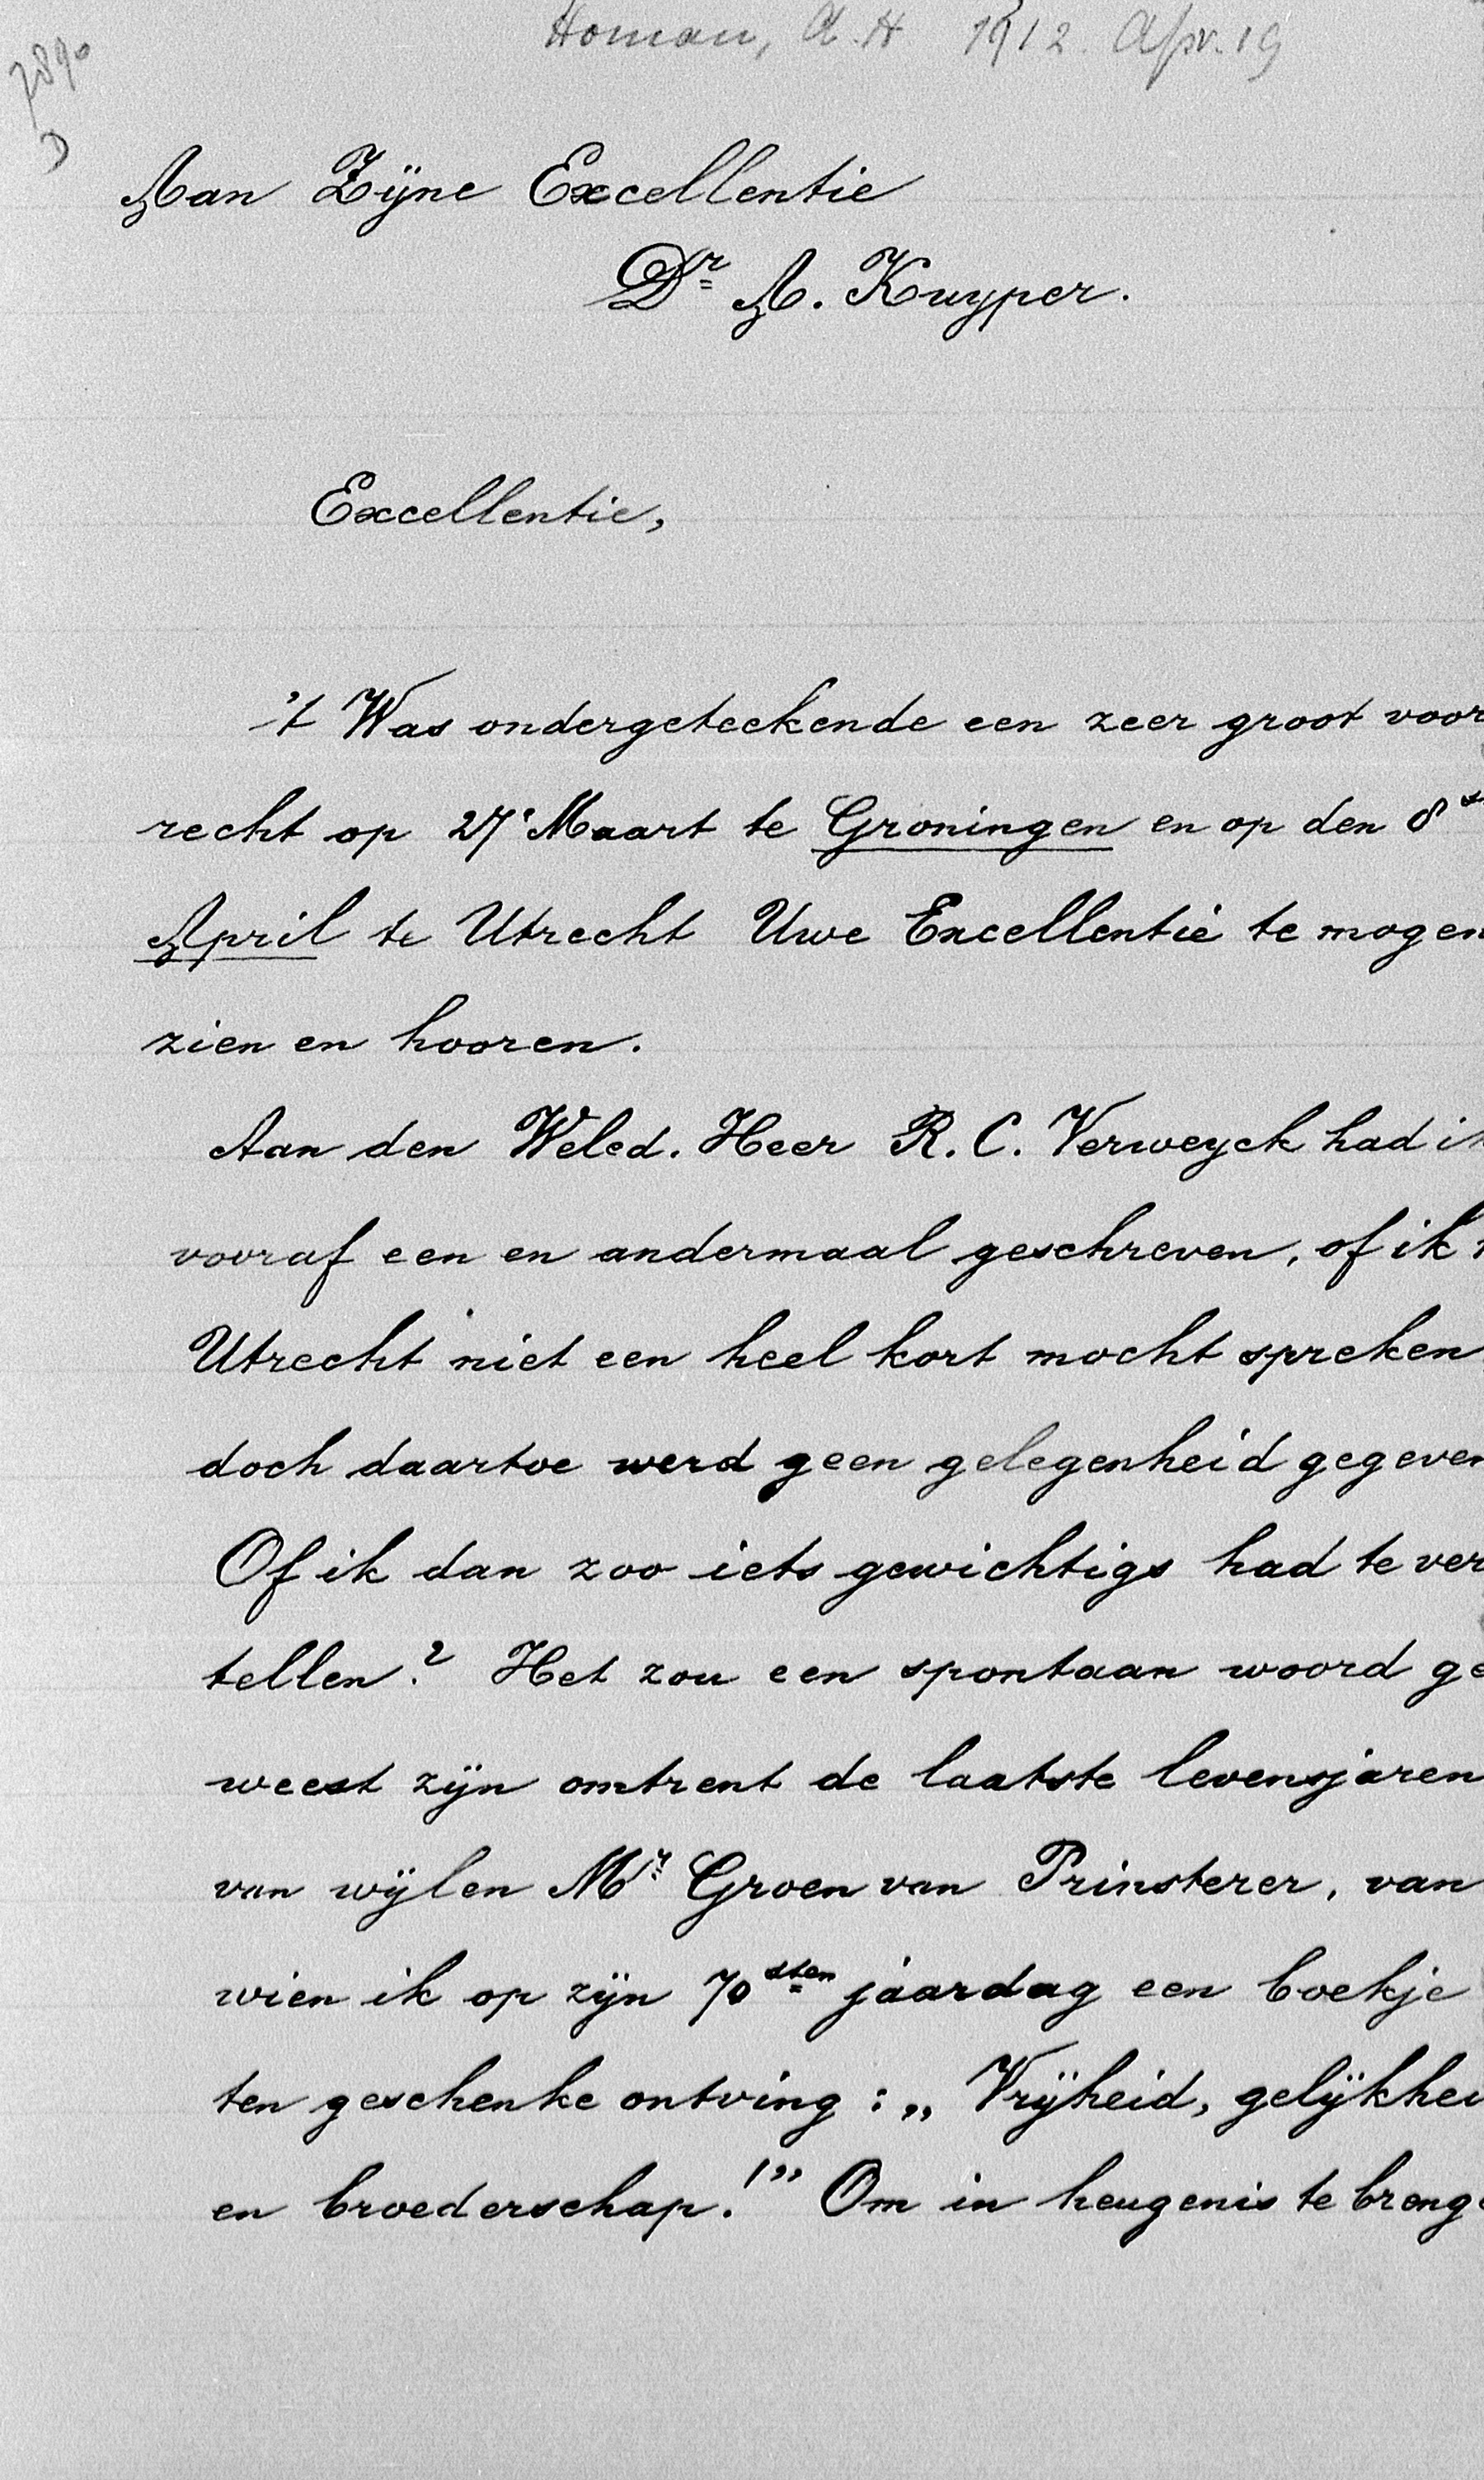 Homan, A. H 1912. Apr. 19
7890
D
Aan Zijne Excellentie
Dr A. Kuyper.
Excellentie,
't Was ondergeteekende een zeer groot voor
recht op 27 Maart te Groningen en op den 8
April te Utrecht Uwe Excellentie te mogen
zien en hooren.
Aan den Weled. Heer R. C. Verweyck had ik
vooraf een en andermaal geschreven, of ik
Utrecht niet een heel kort mocht spreken
doch daartoe werd geen gelegenheid gegeven
Of ik dan zoo iets gewichtigs had te ver
tellen? Het zou een spontaan woord ge
weest zijn omtrent de laatste levensjaren
van wijlen Mr Groen van Prinsterer, van
wien ik op zijn 70sten jaardag een boekje
ten geschenke ontving: „Vrijheid, gelijkhei
en broederschap!” Om in heugenis te breng